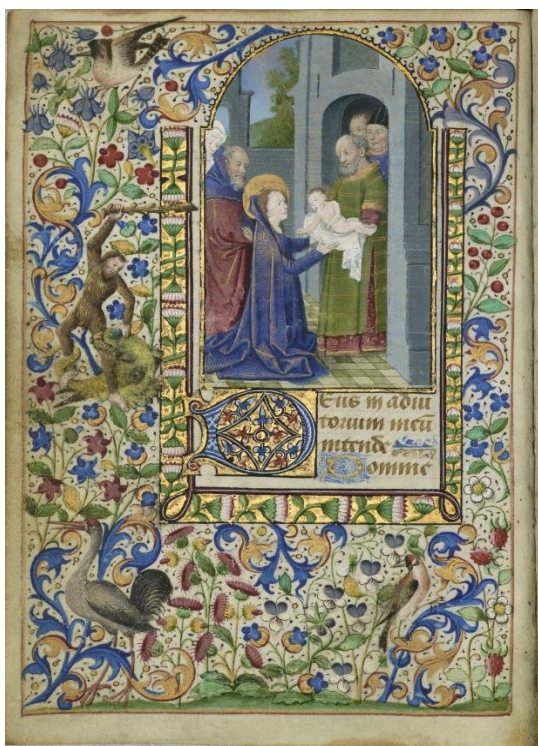 DEus in adiu
torium meū
intende
Domine